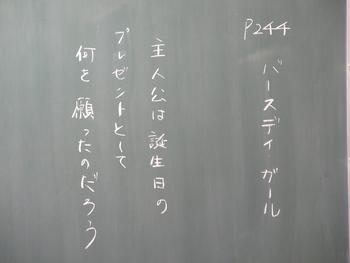 P244
バースデイ・ガール
主人公は誕生日の
プレゼントとして
何を願ったのだろう